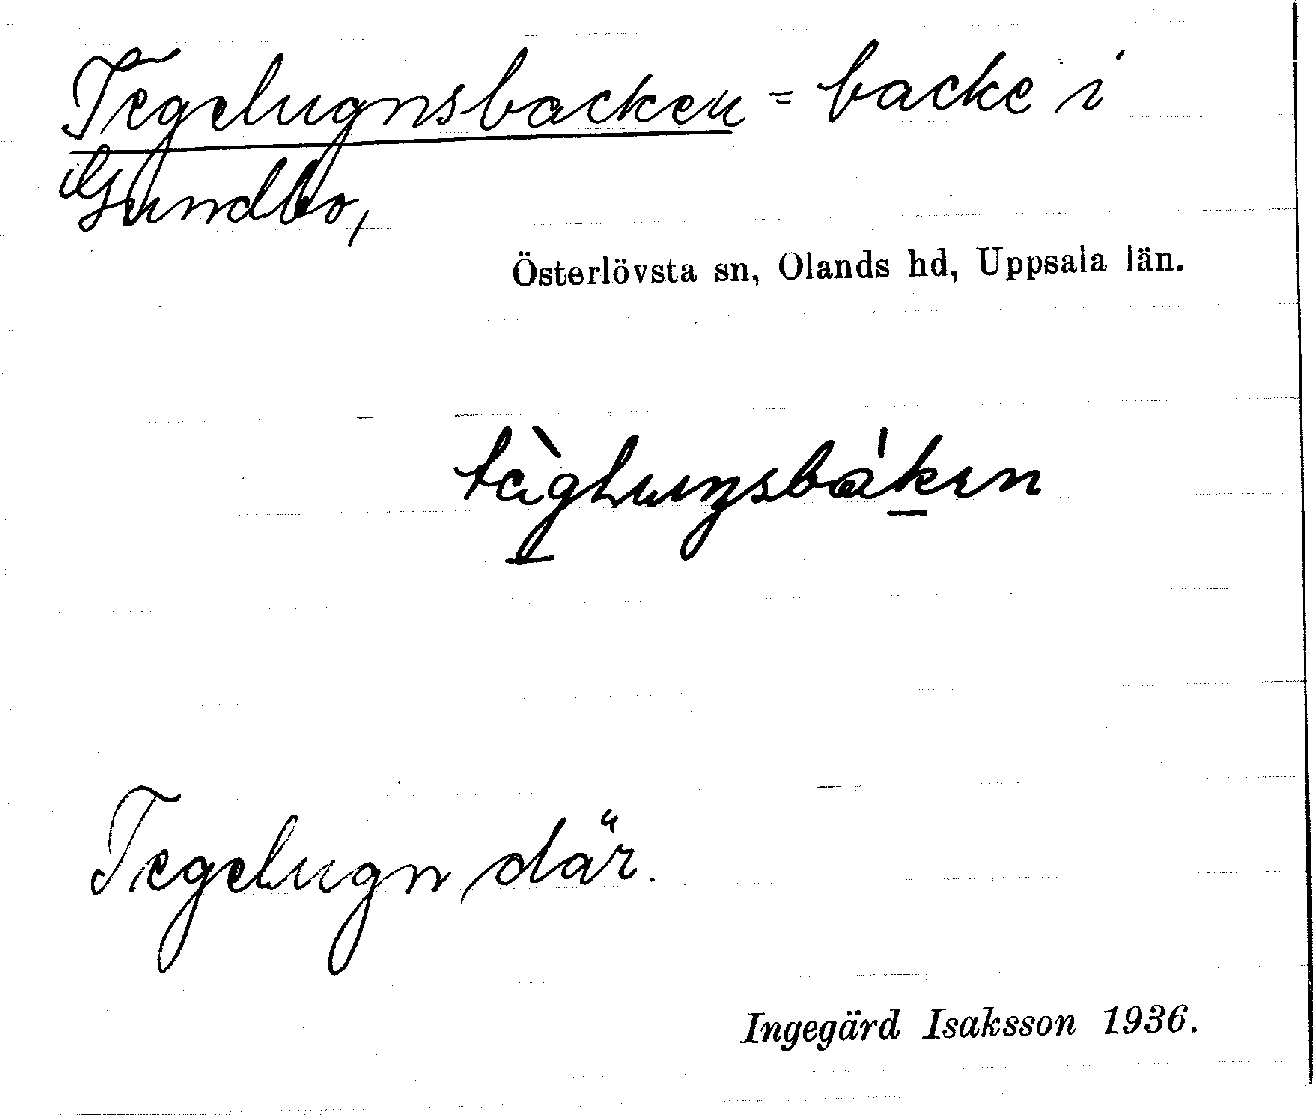 Tegelugnsbacken = backe i
Gundbo,
Österlövsta sn, Olands hd, Uppsala län.
Tegelugn där.
Ingegärd Isaksson 1936.